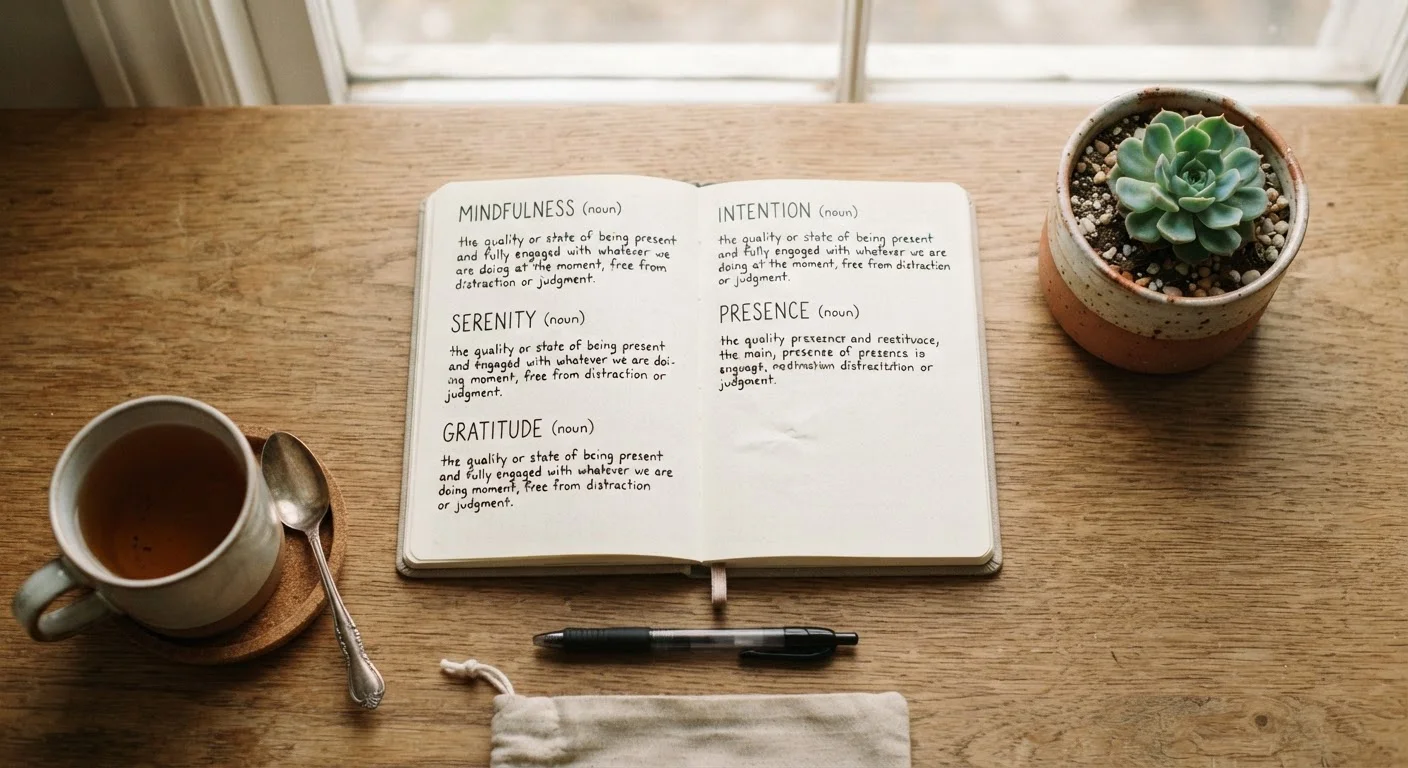 MINDFULNESS (noun)
the quality or state of being present
and fully engaged with whatever we
are doing at the moment, free from
distraction or judgment.
SERENITY (noun)
the quality or state of being present
and engaged with whatever we are doi-
ing moment, free from distraction or
judgment.
GRATITUDE (noun)
the quality or state of being present
and fully engaged with whatever we are
doing moment, free from distraction
or judgment.
INTENTION (noun)
the quality or state of being present
and fully engaged with whatever we are
doing at the moment, free from distraction
or judgment.
PRESENCE (noun)
the quality and
the main, presence of presencs is
or